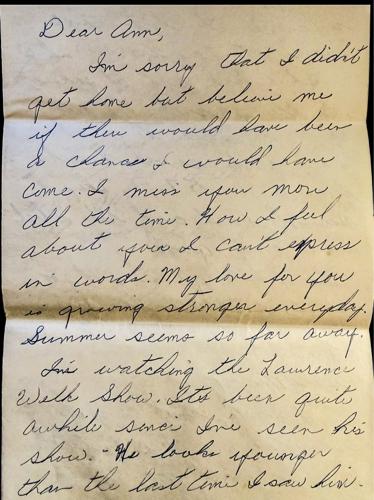 Dear Ann,
I'm sorry that I didn't
get home but believe me
if there would have been
a chance I would have
come. I miss you more
all the time. How I feel
about you I can't express
in words. My love for you
is growing stronger everyday.
Summer seems so far away.
I'm watching the Lawrence
Welk Show. It's been quite
awhile since I've seen his
show. - He looks younger
than the last time I saw him.